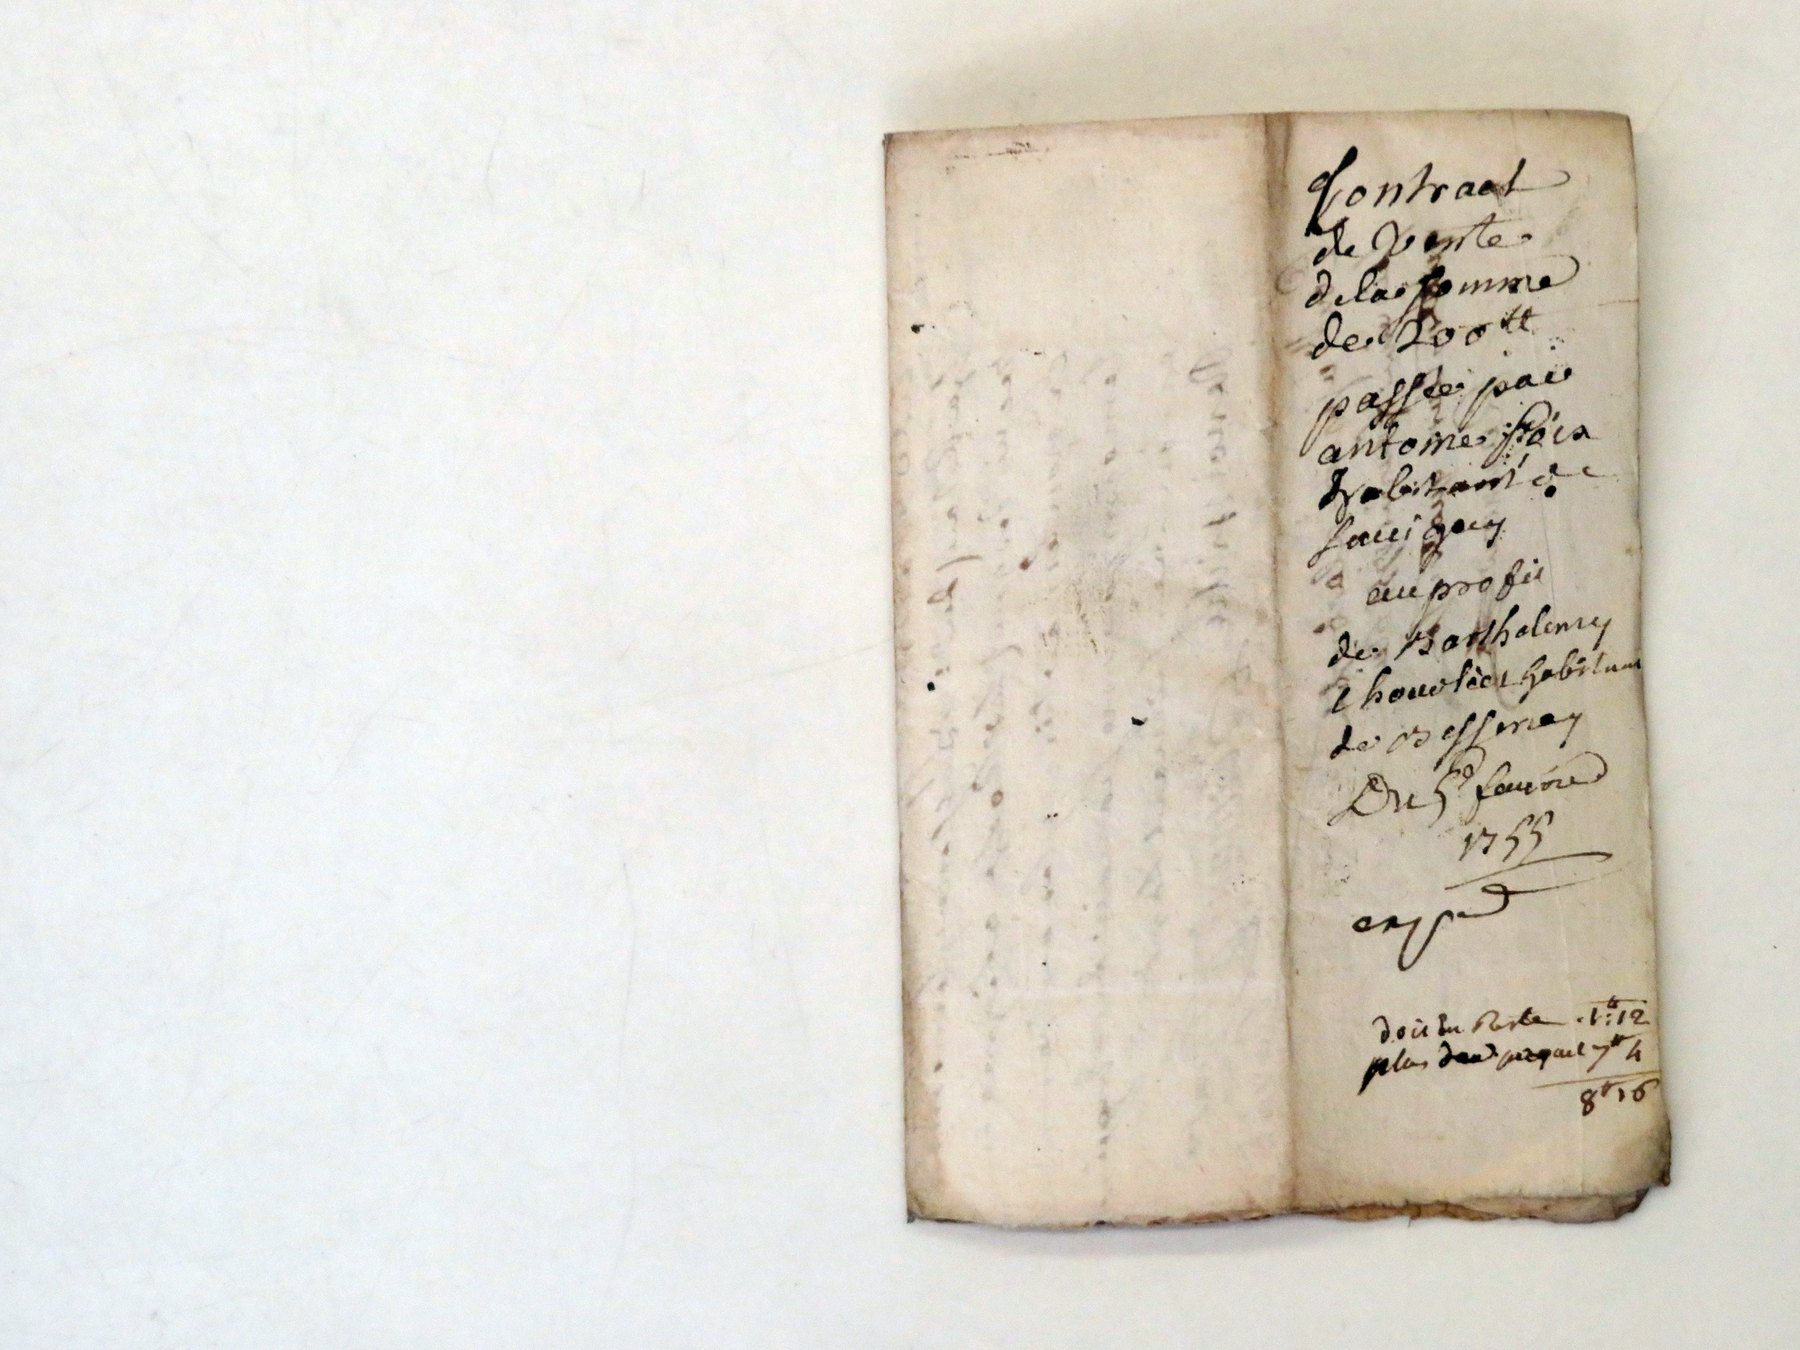 Contract
de Vente
de la somme
de 200tt
passée par
antoine fois
habitant de
Savigny
au profit
de Barthelemy
Thoveliet habitant
de Bessenay
Du 5e fevrie
1755
exp
doit du Reste 1tt:12
plus 7tt 4
8tt16